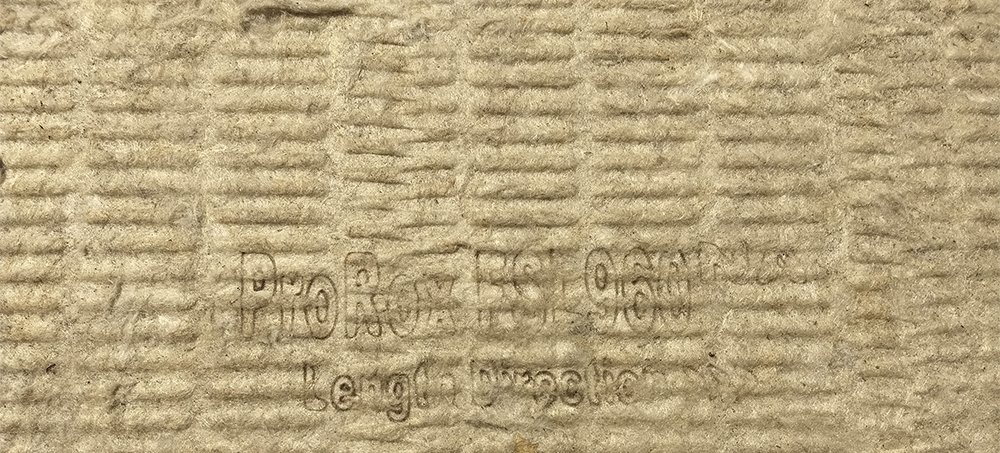 ProRox FSL 960
Length Direction